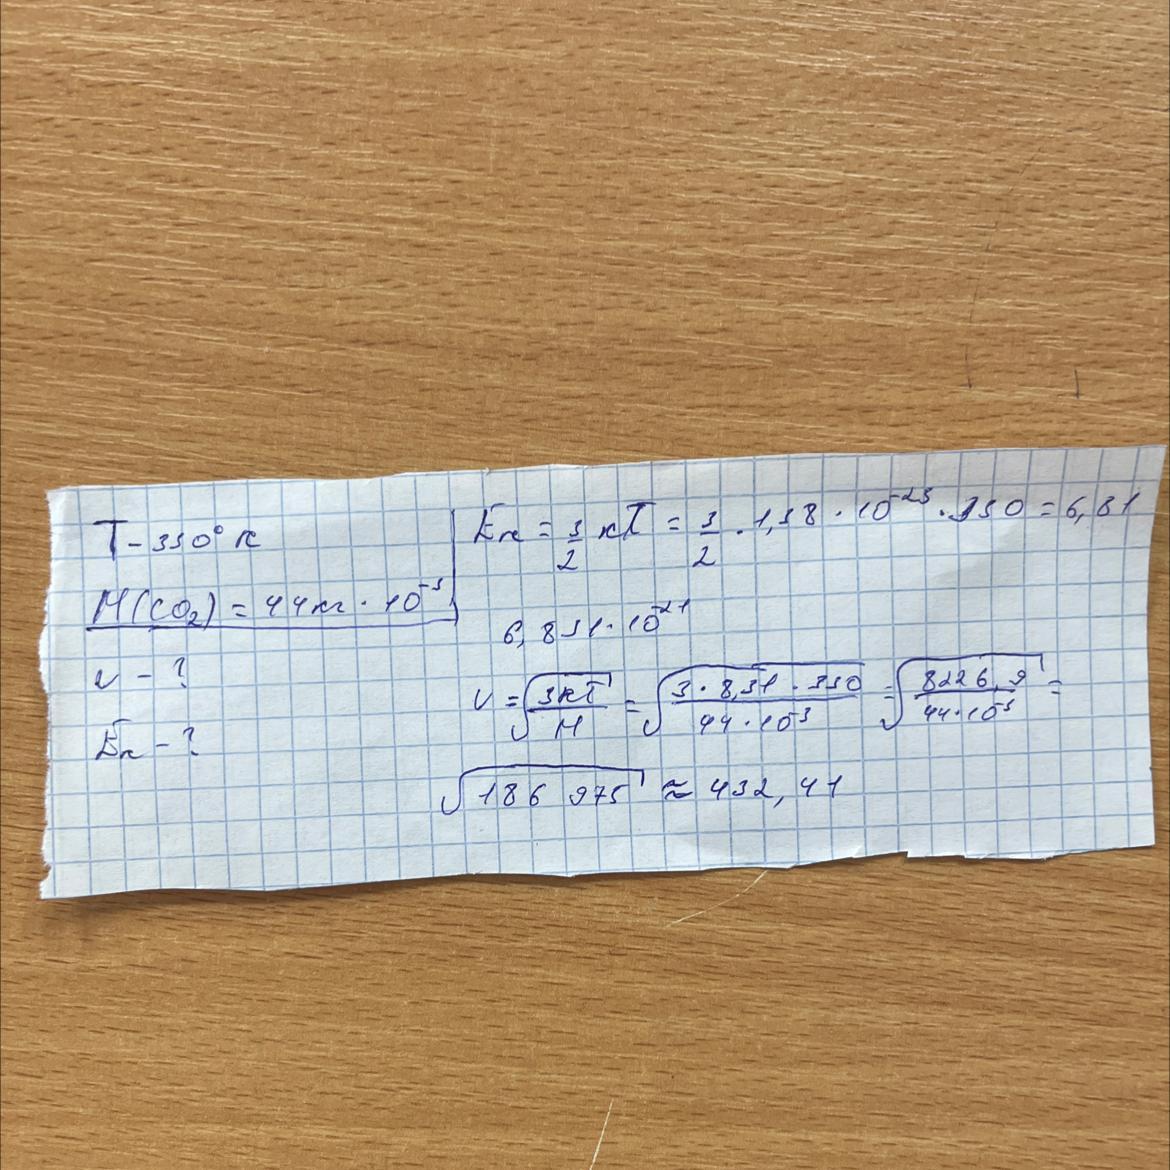 T - 330° К
M(CO₂) = 44 кг · 10⁻³
v - ?
Eк - ?
Eк = 3/2 кT = 3/2 · 1,38 · 10⁻²³ · 330 = 6,81
6,831 · 10⁻²¹
v = √(3кT/M) = √(3 · 8,31 · 330/44 · 10⁻³) = √(8226,9/44 · 10⁻³) =
√186 975 ≈ 432,41